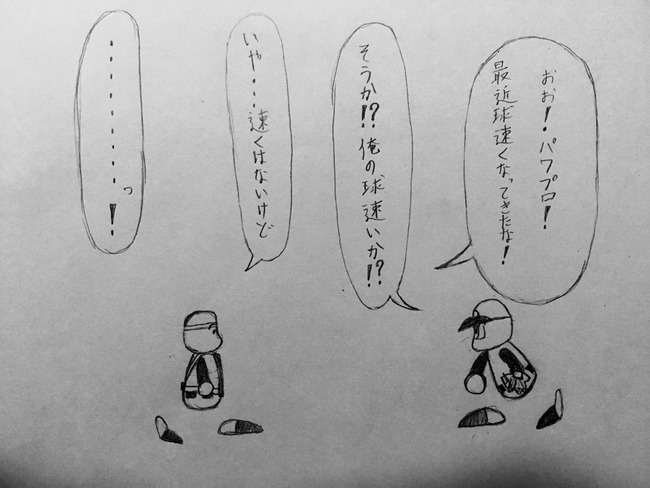 おぉ!パワプロ!
最近球速くなってきたな!
そうか!?俺の球速いか!?
いや・・・速くはないけど
・・・・・・・・・っ!